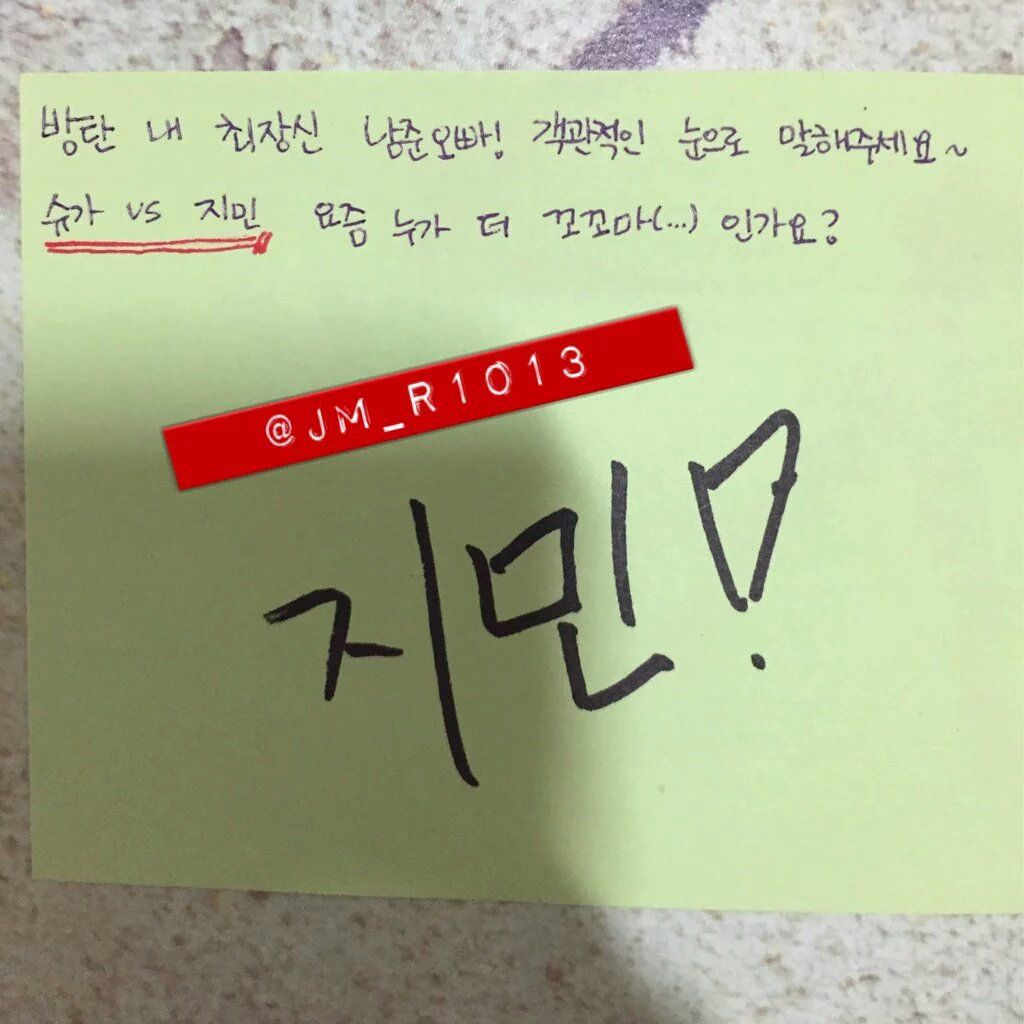 방탄 내 최장신 남준오빠! 객관적인 눈으로 말해주세요~
슈가 vs 지민 요즘 누가 더 꼬꼬마(...) 인가요?
@JM_R1013
지민!